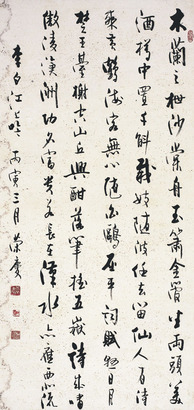 木蘭之枻沙棠舟玉簫金管坐兩頭美
酒樽中置千斛載妓隨波任去留仙人有待
乘黃鶴海客無心隨白鷗屈平詞賦懸日月
楚王臺榭空山丘興酣落筆搖五嶽詩成笑
傲凌滄洲功名富貴若長在漢水亦應西北流
李白江上吟 丙寅三月 榮慶